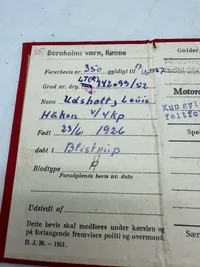 Bornholms værn, Rønne
Førerbevis nr. 350 gyldigt til
1957
LT(R)
Grad og nr. drg. 342099/52
Navn Udsholt, Louis
Håkon V/4kp
Født 23/4 1926
døbt i Blistrup
Blodtype A
Foranjgående bevis nr. dato
Udstedt af
Dette bevis skal medføres under kørslen og
på forlangende fremvises politi og overmand.
II. J. 26. - 1951.
Gælder
Motorc
Kun gyl
feltfor
Spe
Sær